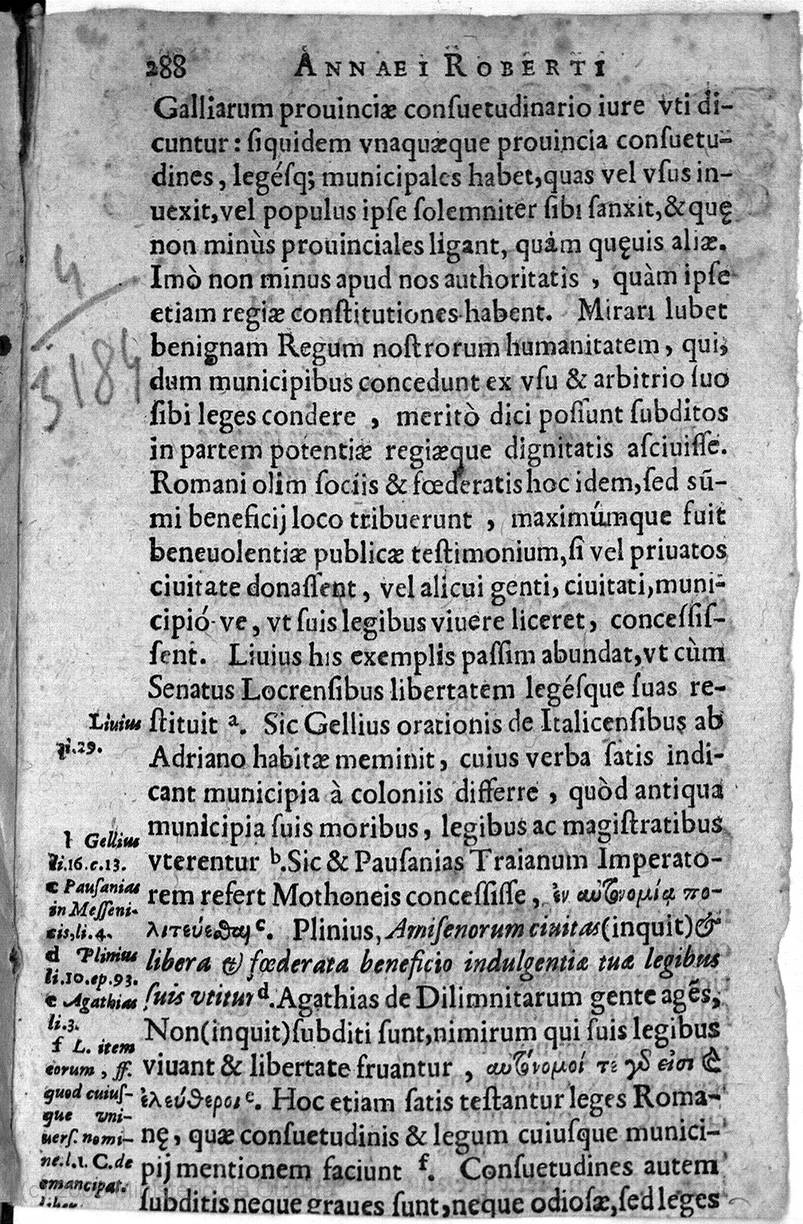 288 ANNAEI ROBERTI
Galliarum prouinciæ conſuetudinario iure vti di-
cuntur: ſiquidem vnaquæque prouincia conſuetu-
dines, legéſq; municipales habet, quas vel vſus in-
uexit, vel populus ipſe ſolemniter ſibi ſanxit, & quę
non minùs prouinciales ligant, quàm quęuis aliæ.
Imò non minus apud nos authoritatis, quàm ipſe
etiam regiæ conſtitutiones habent. Mirari lubet
benignam Regum noſtrorum humanitatem, qui,
dum municipibus concedunt ex vſu & arbitrio ſuo
ſibi leges condere, meritò dici poſſunt ſubditos
in partem potentiæ regiæque dignitatis aſciuiſſe.
Romani olim ſociis & fœderatis hoc idem, ſed sū-
mi beneficij loco tribuerunt, maximúmque fuit
beneuolentiæ publicæ teſtimonium, ſi vel priuatos
ciuitate donaſſent, vel alicui genti, ciuitati, muni-
cipió-ve, vt ſuis legibus viuere liceret, conceſſiſ-
ſent. Liuius his exemplis paſſim abundat, vt cùm
Senatus Locrenſibus libertatem legéſque ſuas re-
ſtituit a. Sic Gellius orationis de Italicenſibus ab
Adriano habitæ meminit, cuius verba ſatis indi-
cant municipia à coloniis differre, quòd antiqua
municipia ſuis moribus, legibus ac magiſtratibus
vterentur b. Sic & Pauſanias Traianum Imperato-
rem refert Mothoneis conceſſiſſe, ἐν αὐτονομίᾳ πο-
λιτεύεσθαι c. Plinius, Amiſenorum ciuitas (inquit) &
libera & fœderata beneficio indulgentiæ tuæ legibus
ſuis vtitur d. Agathias de Dilimnitarum gente agēs,
Non (inquit) ſubditi ſunt, nimirum qui ſuis legibus
viuant & libertate fruantur, αὐτόνομοί τε γὰρ εἰσι καὶ
ἐλεύθεροι e. Hoc etiam ſatis teſtantur leges Roma-
nę, quæ conſuetudinis & legum cuiuſque munici-
pij mentionem faciunt f. Conſuetudines autem
ſubditis neque graues ſunt, neque odioſæ, ſed leges
Liuius
li.29.
Gellius
li.16.c.13.
c Pauſanias
in Meſſeni-
cis, li.4.
d Plinius
li.10.ep.93.
e Agathias
li.3.
f L. item
eorum, ff.
quod cuiuſ-
que vni-
uerſ. nomi-
ne. l.1. C. de
emancipat.
liber.
4
3184